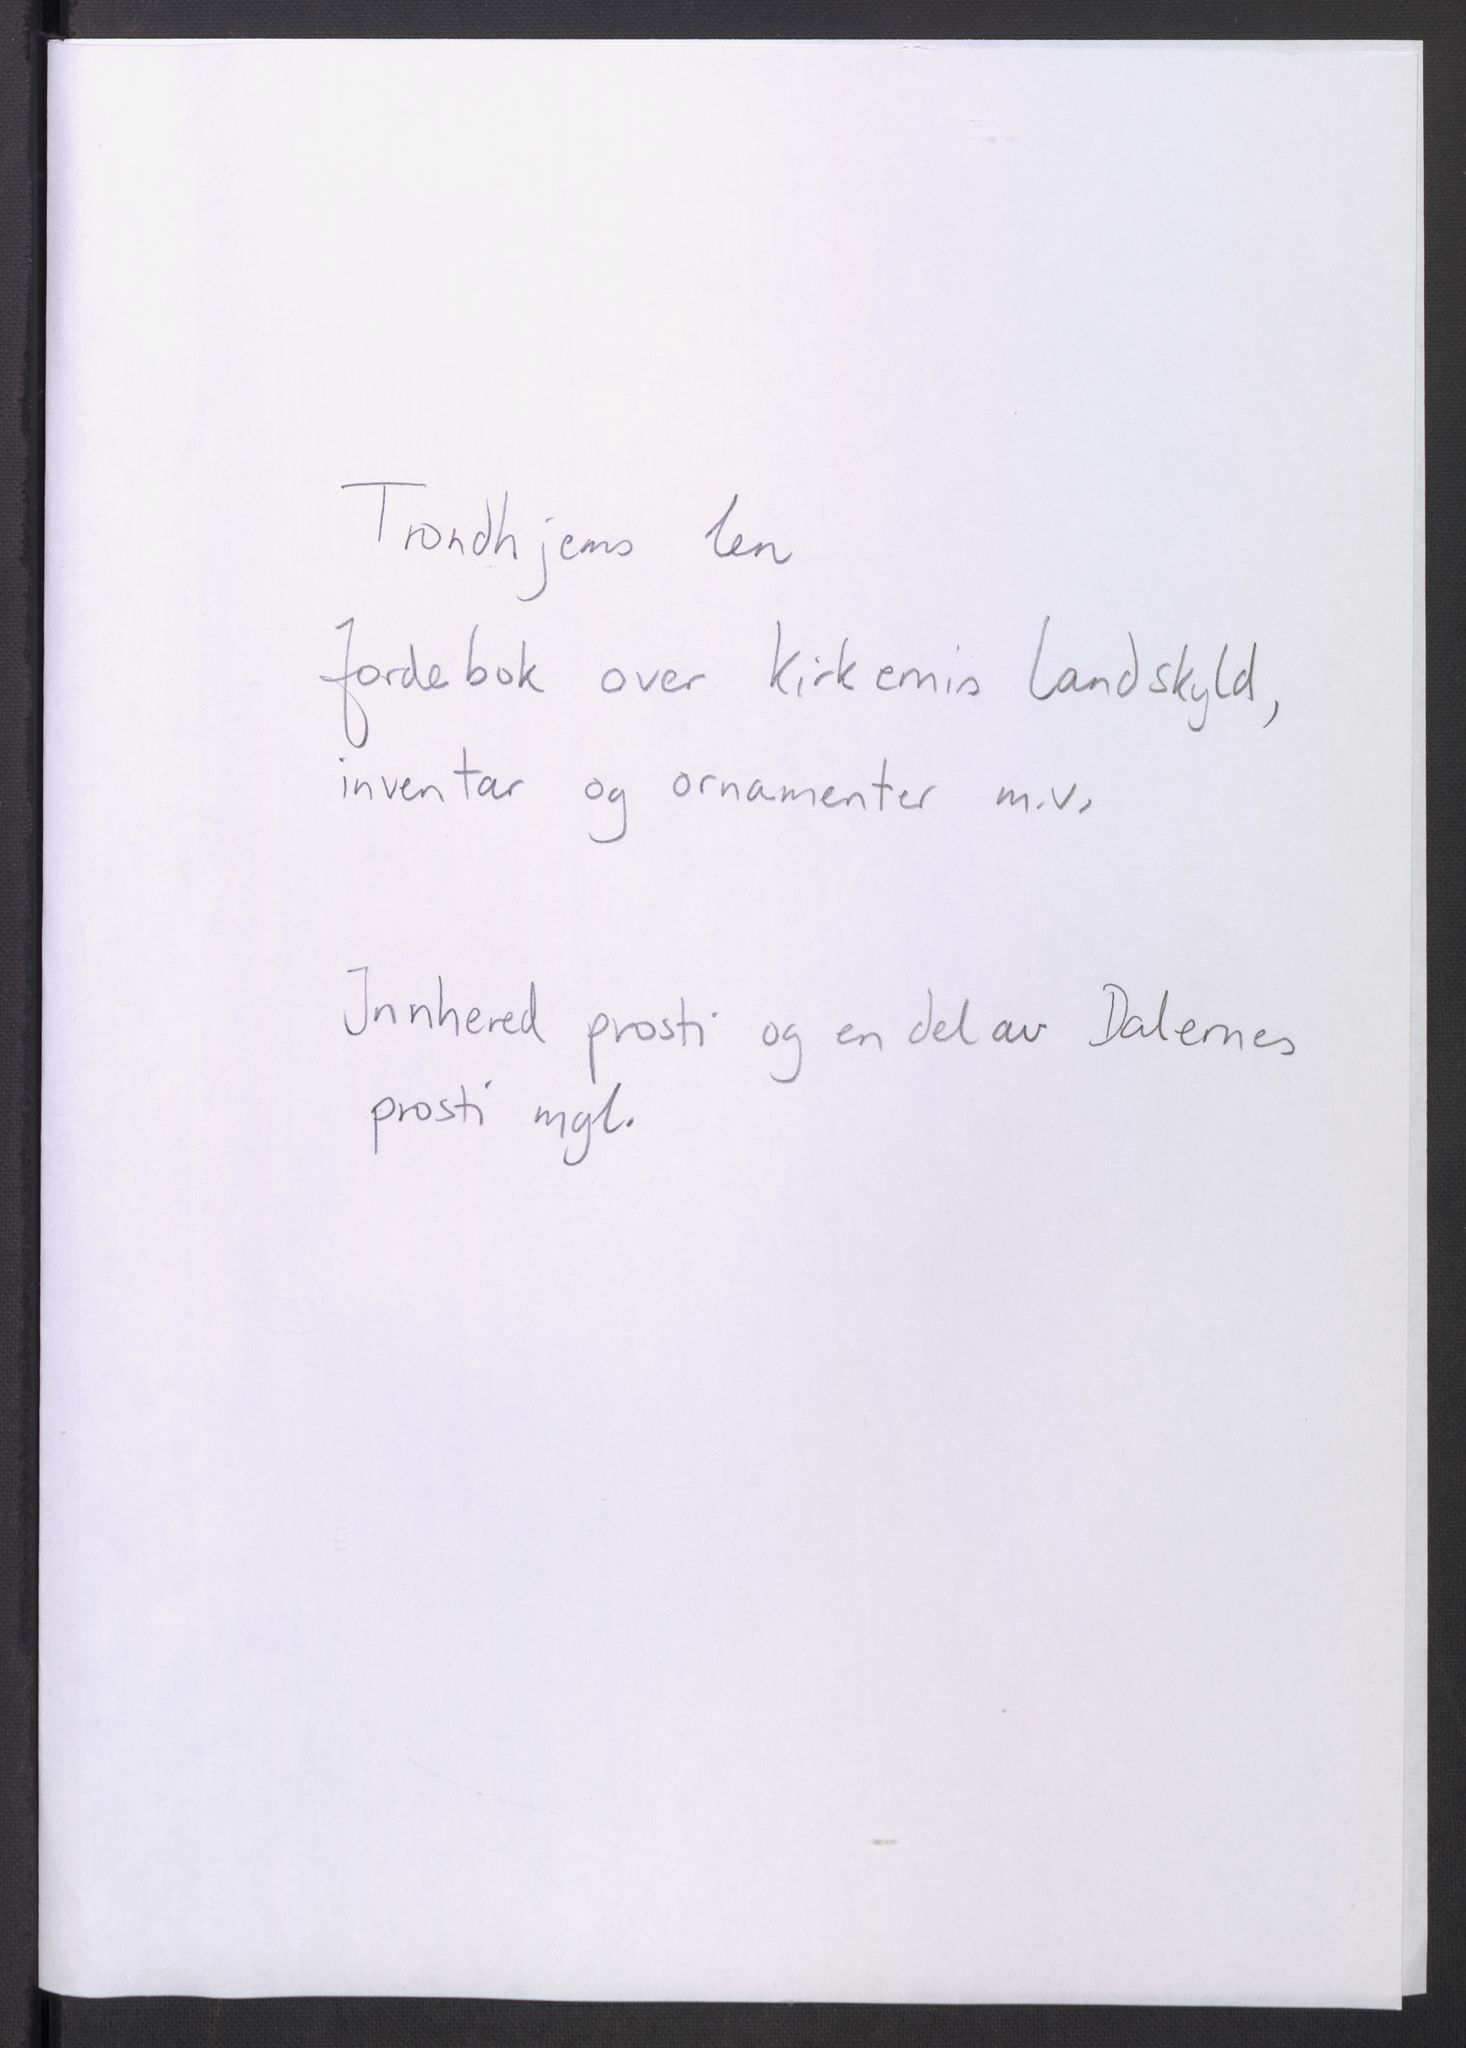 Trondhjems len
Jordebok over kirkernis landskyld,
inventar og ornamenter m.v.
Innhered prosti og en del av Dalernes
prosti mgl.